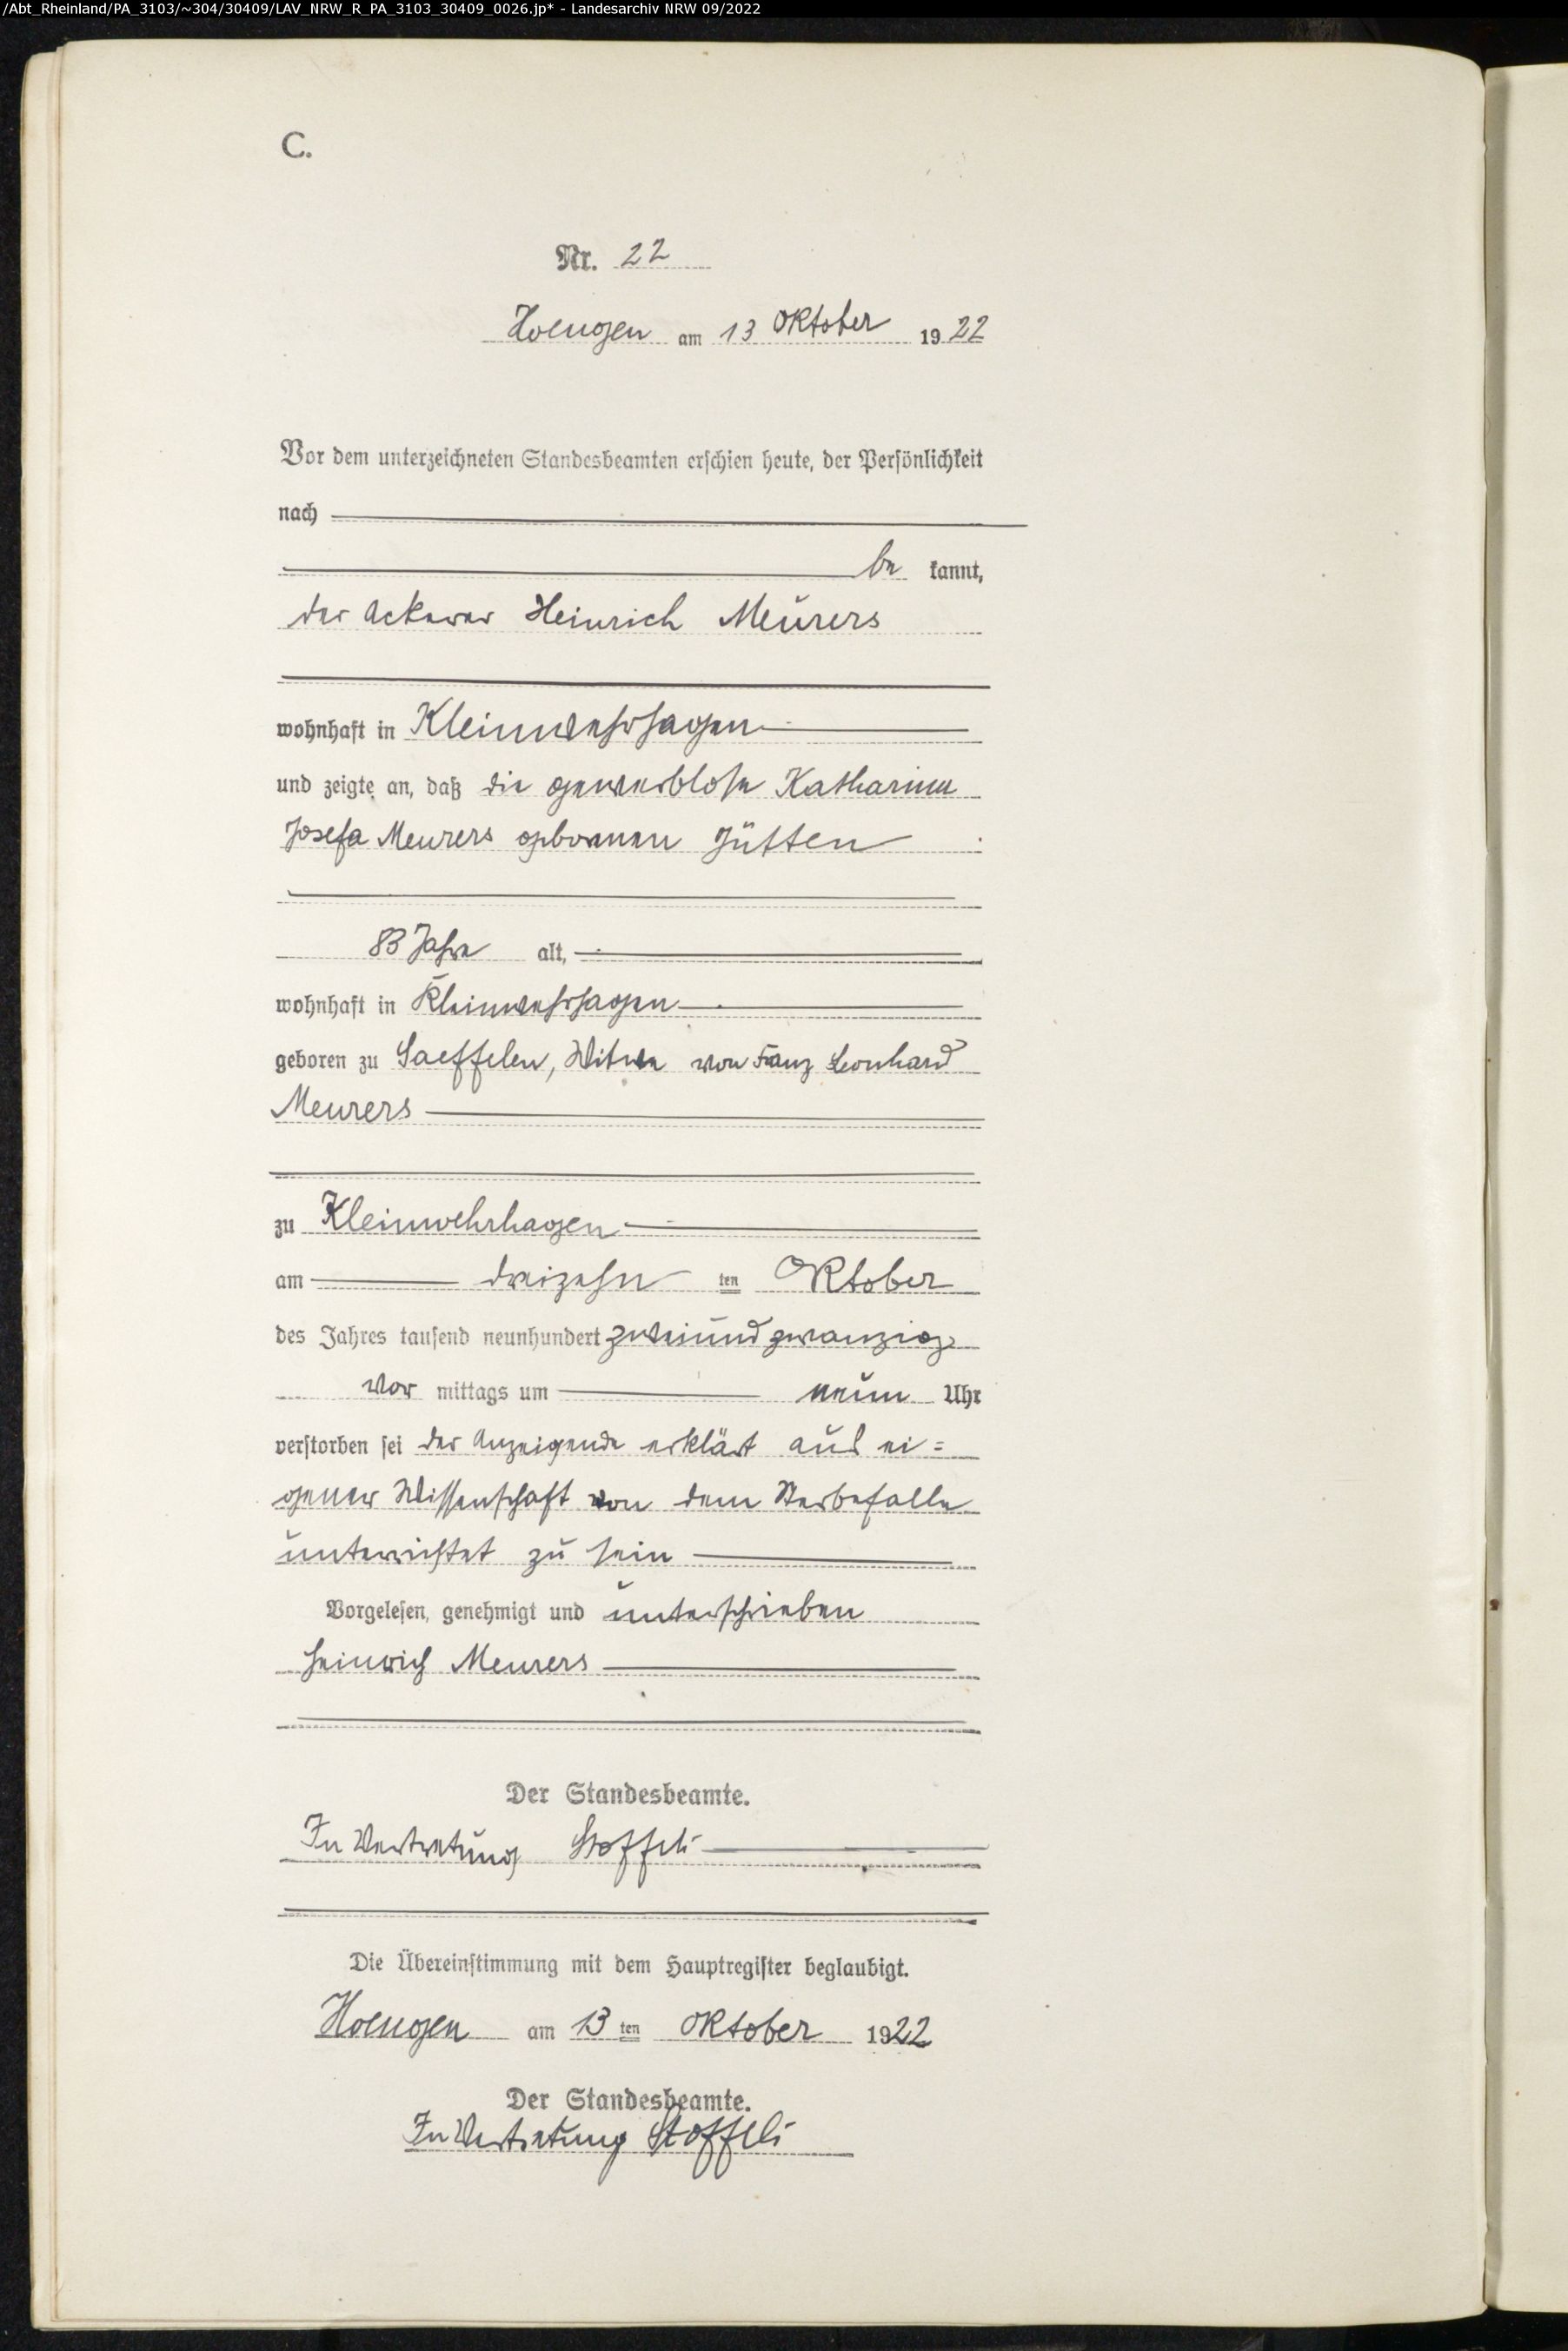 /Abt_Rheinland/PA_3103/~304/30409/LAV_NRW_R_PA_3103_30409_0026.jp* - Landesarchiv NRW 09/2022
C.
Nr. 22
Hoengen am 13 Oktober 1922
Vor dem unterzeichneten Standesbeamten erschien heute, der Persönlichkeit
nach
be kannt,
der Ackerer Heinrich Meurers
wohnhaft in Kleinwehrhagen
und zeigte an, daß die gewerblose Katharina
Josefa Meurers geborenen Jütten
83 Jahre alt,
wohnhaft in Kleinwehrhagen
geboren zu Saeffelen, Witwe von Franz Leonhard
Meurers
zu Kleinwehrhagen
am dreizehn ten Oktober
des Jahres tausend neunhundert zweiundzwanzig
vor mittags um neun Uhr
verstorben sei der Anzeigende erklärt aus ei=
gener Wissenschaft von dem Sterbefalle
unterrichtet zu sein
Vorgelesen, genehmigt und unterschrieben
Heinrich Meurers
Der Standesbeamte.
In Vertretung Stoffels
Die Übereinstimmung mit dem Hauptregister beglaubigt.
Hoengen am 13 ten Oktober 1922
Der Standesbeamte.
In Vertretung Stoffels